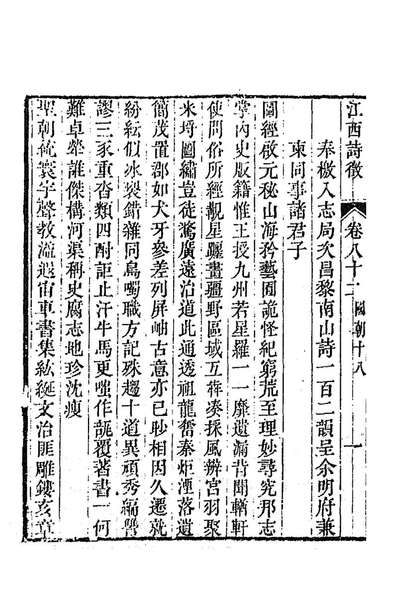 江西詩徵 卷八十二 國朝十八 一
奉檄入志局次昌黎南山詩一百二韻呈余明府兼
柬同事諸君子
圖經啟元秘山海矜藝囿詭怪紀窮荒至理妙尋究那志
掌內史版籍惟王授九州若星羅一一靡遺漏昔聞輶軒
使問俗所經覯星躔畫疆野區域互犇湊採風辨宮羽聚
米埒圖繡豈徒騖廣遠治道此通透祖龍奮秦炬湮落遺
簡茂置郡如犬牙參差列屏岫古意亦已眇相因久遷就
紛紜似冰裂錯雜同鳥噣職方記殊趨十道異頑秀編訾
謬三豕重沓類四酎詎止汗牛馬更嗤作瓿覆著書一何
難卓犖誰傑構河渠稱史腐志地珍沈瘦
聖朝統寰宇聲教流遐宙車書集紘綖文治匪雕鏤亥章